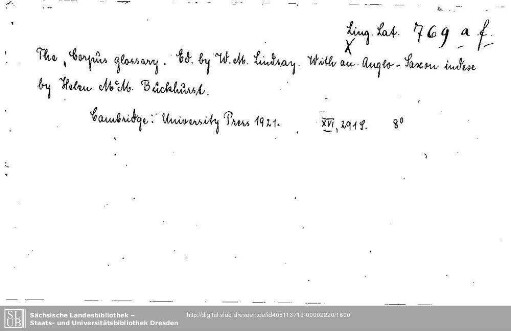 Ling. Lat. 769 a f.
X
The Corpus glossary. Ed. by W. M. Lindsay. With an Anglo-Saxon indese
by Helen McM. Buckhurst.
Cambridge: University Press 1921. XVI, 291 S. 8°
SLUB
Sächsische Landesbibliothek –
Staats- und Universitätsbibliothek Dresden